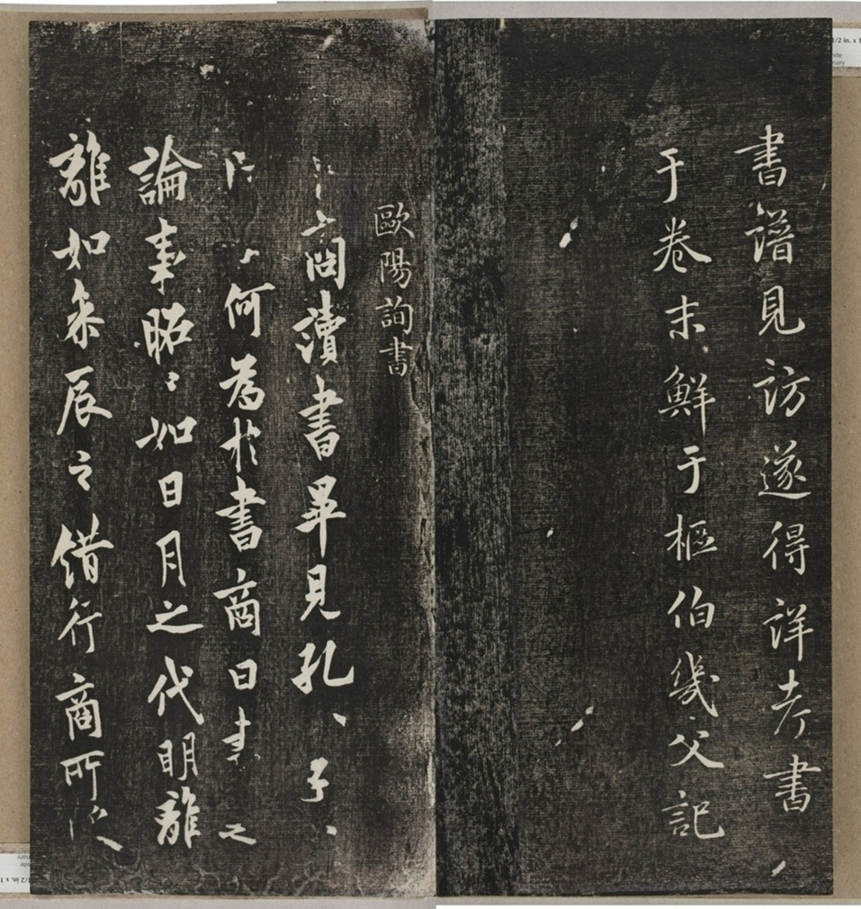 書譜見訪遂得詳考書
于卷末鮮于樞伯幾父記
歐陽詢書
商讀書畢見孔〻子〻
何為於書商曰書之
論事昭〻如日月之代明離
離如參辰之錯行商所